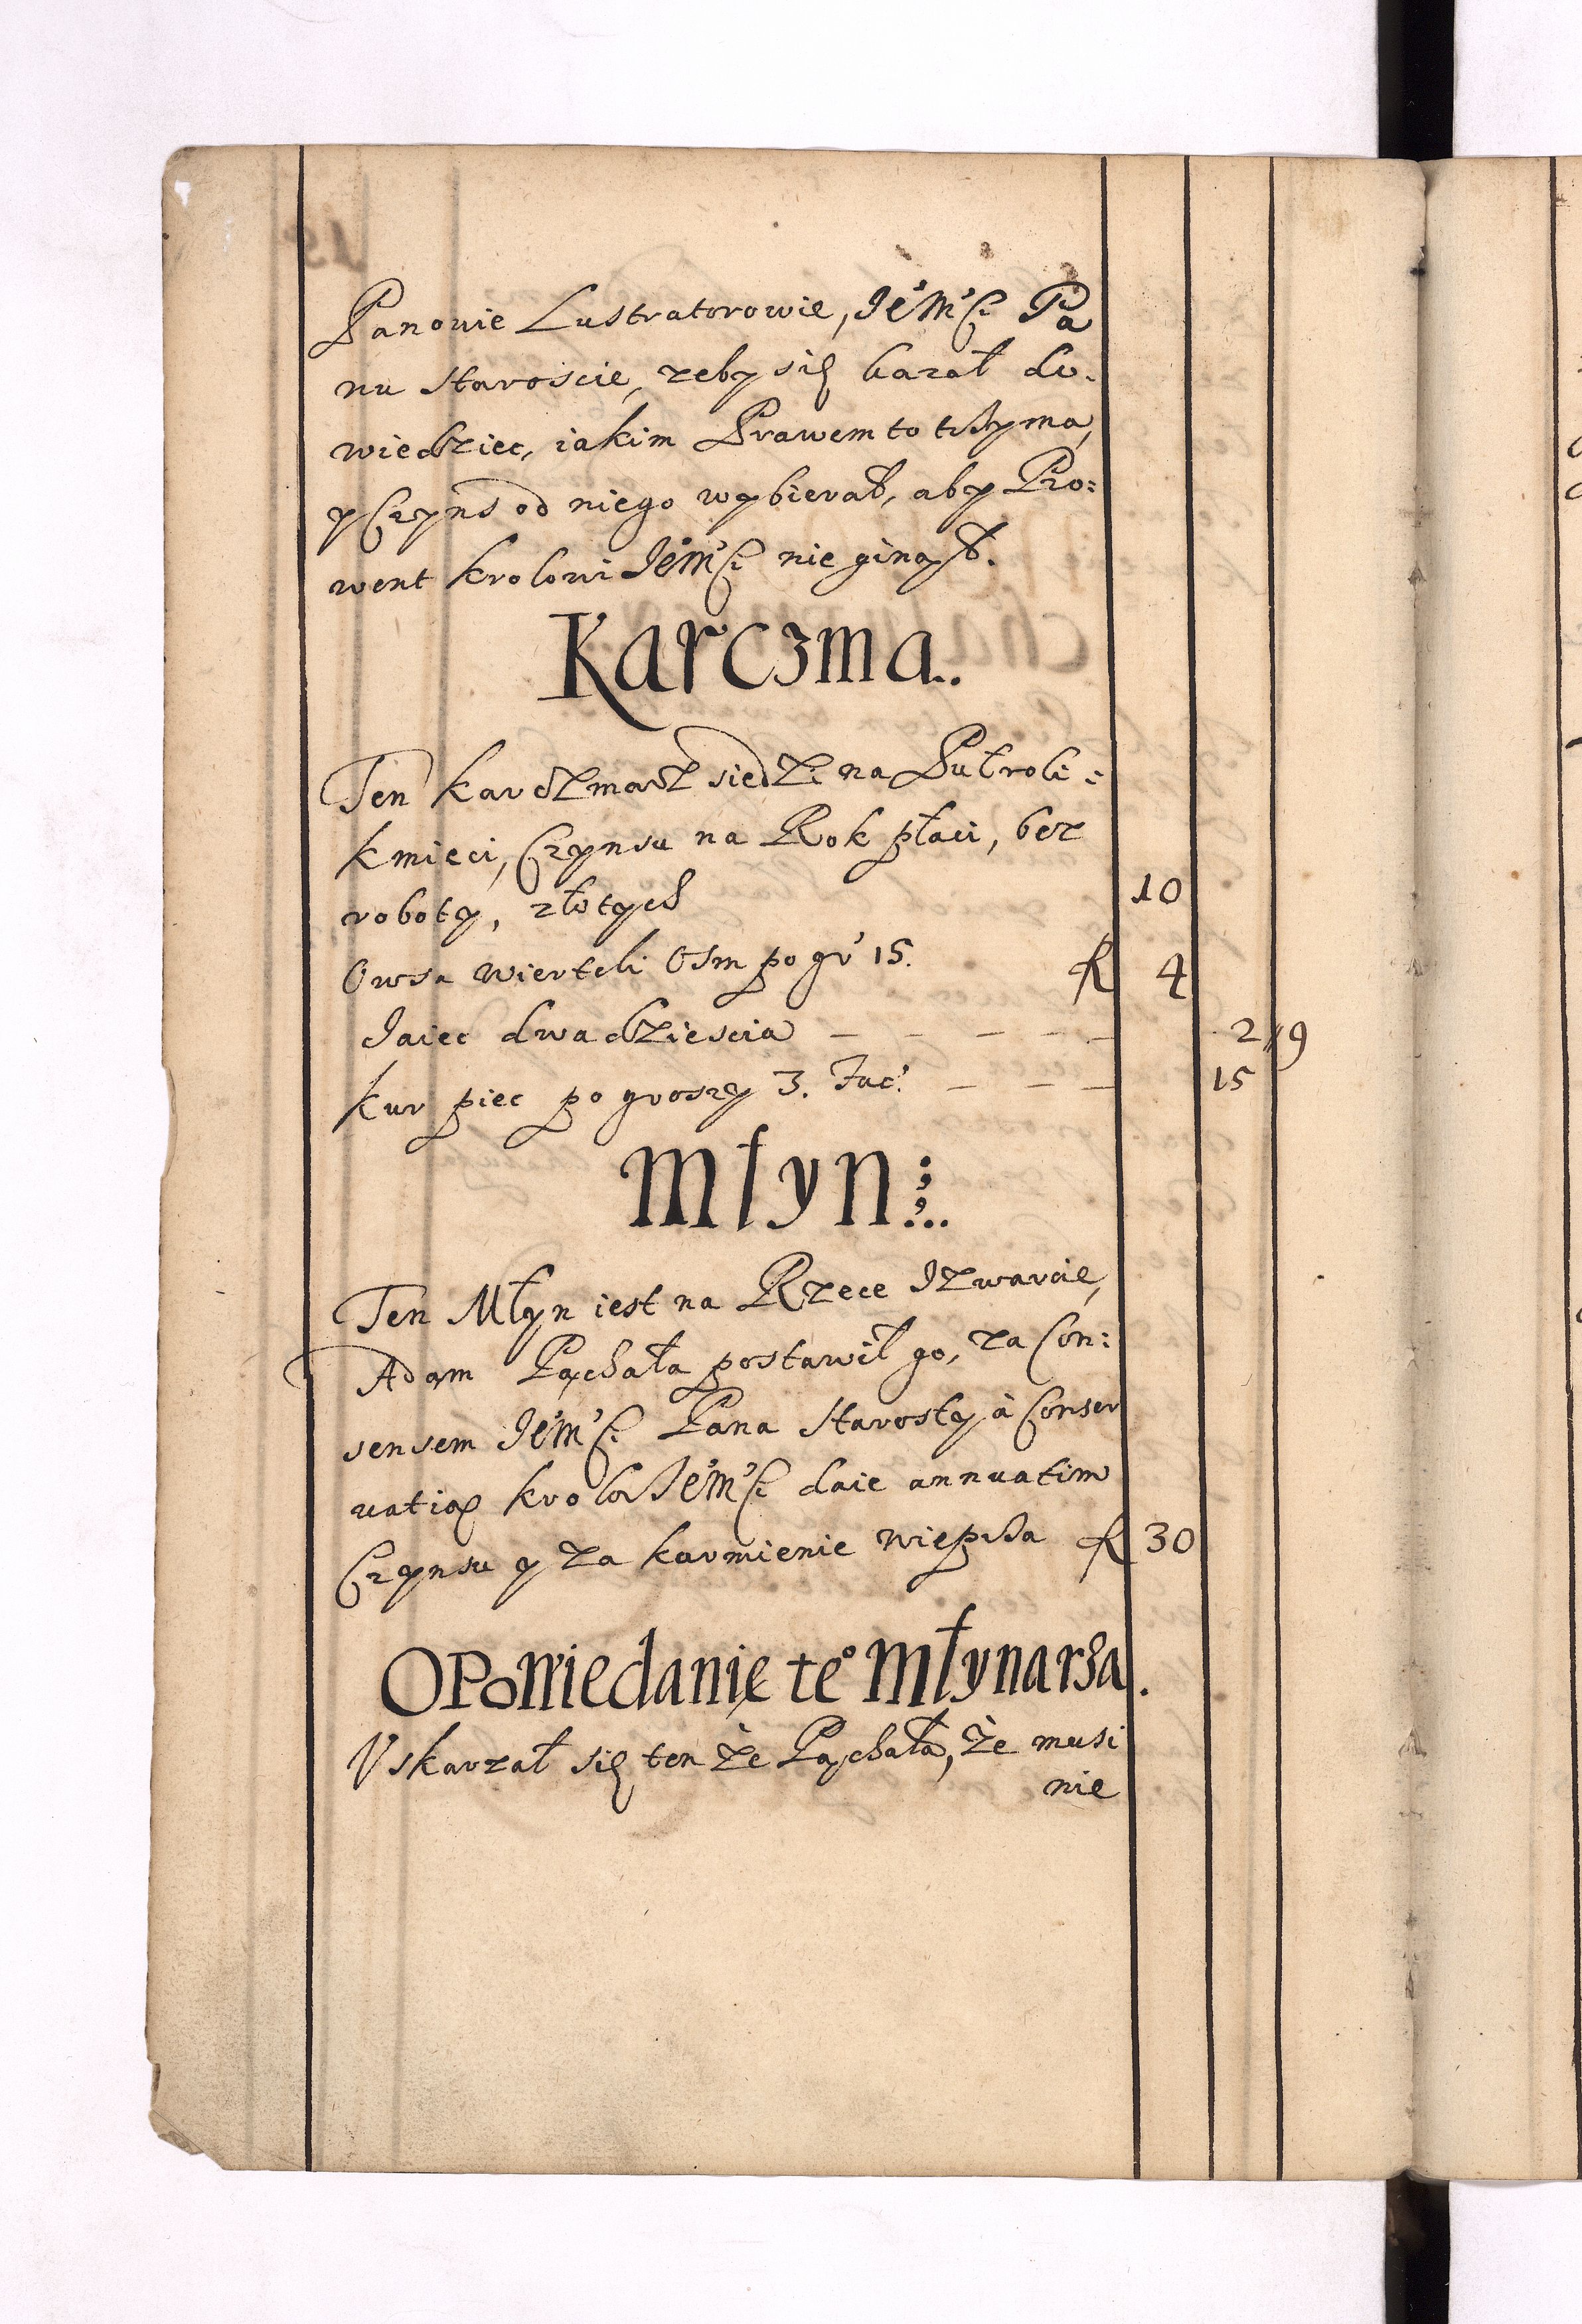 Panowie Lustratorowie, Je'M'Ci Pa
nu staroscie, zeby się kazał do-
wiedziec, iakim Prawem to trzyma,
y Czyns od niego wybierał, aby Pro:
went krolowi JeºM'Ci nie ginął.
Karczma..
Ten karczmarz siedzi na Pułroli:
kmieci, Czynsu na Rok płaci, bez
roboty, złotych 10
Owsa wierteli Osm po gr' 15. fl 4
Jaiec dwadziescia – – – – – 2 // 9
kur piec po groszy 3. fac'. – – – 15
Młyn
Ten Młyn iest na Rzece
Adam Pąchała postawił go, za Con:
sensem Je'M'Ci Pana Starosty à Conser
vatią krola JeºM'Ci daie annuatim
Czynsu y za karmienie wieprza fl 30
OPoWiedanie teº Młynarza.
Vskarzał się ten Że Pąchała, Że musi
nie